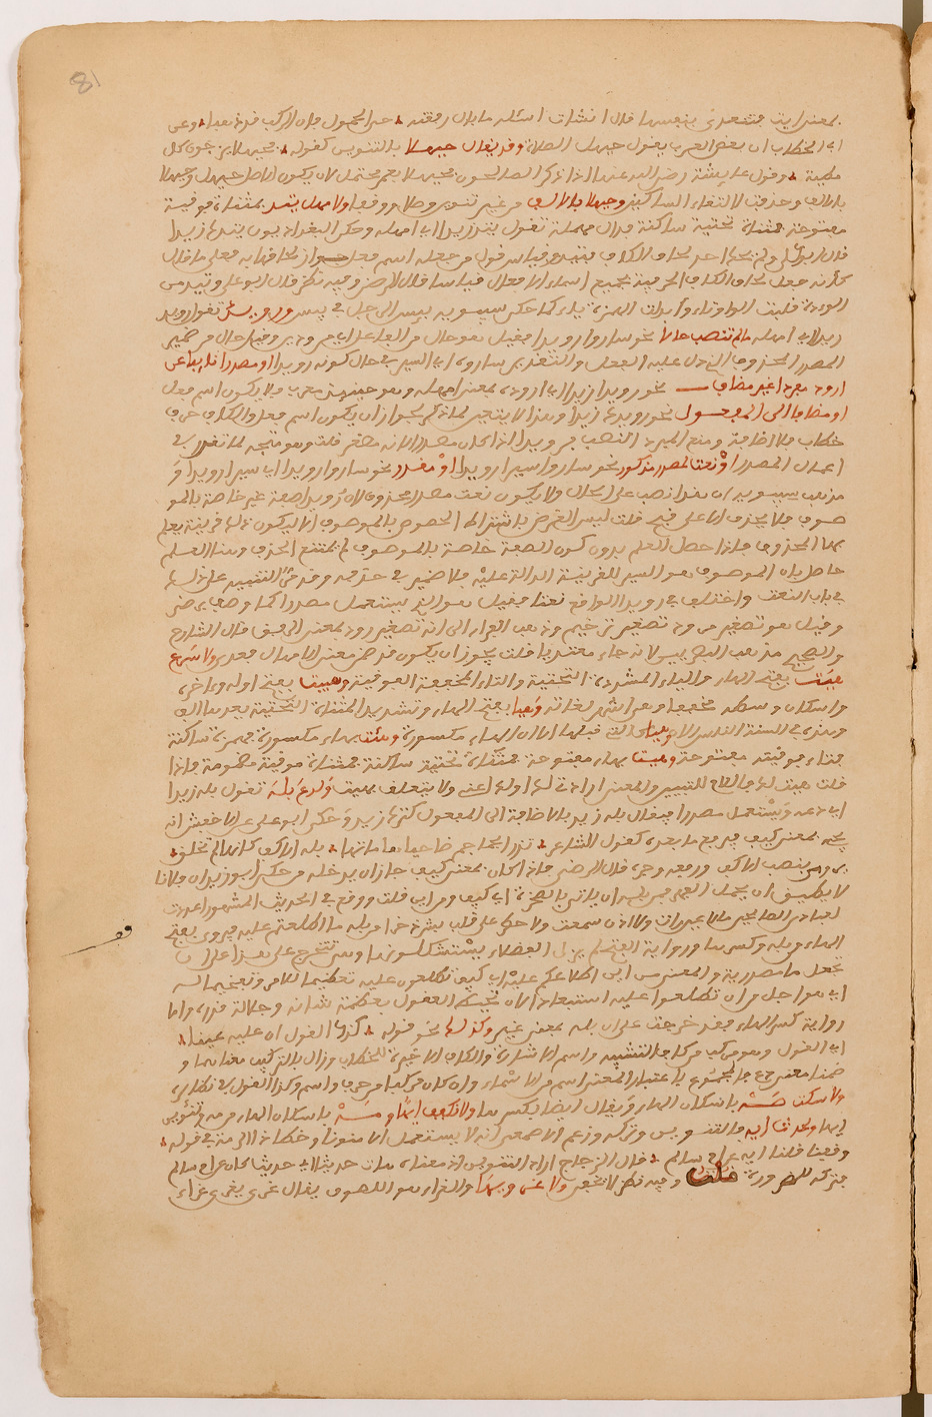 81
بمعنى ايت فتتعدى بنفسها قال انشات اسئله ما بال رفقته حي الحمول فان الركب قد ذهبا وعن
ابي الخطاب ان بعض العرب يقول حيهل الصلاة وقد يقال حيهلا بالتنوين كقوله بحيهلا يزجون كل
مطية وقول عايشة رضي الله عنها اذا ذكر الصالحون فحيهلا بعمر يحتمل ان يكون الاصل حيهل وحيهلا
بالالف وحذفت لالتقاء الساكنين وحيهلا بالالف من غير تنوين وصلا ووقفا ولامهل تيد بمثناة فوقية
مفتوحة فمثناة تحتية ساكنة فدال مهملة تقول تيد زيدا اي امهله وحكى البغداديون تيدك زيدا
قال ابو علي ولم يحك احد لحاق الكاف بتيد وقياس قول من جعله اسم فعل جواز لحاقها به فعلى ما قال
كانه جعل لحاق الكاف الحرفية بجميع اسماء الافعال قياسا قال الرضي وفيه نظر قال ابو علي وتيد من
التودة قلبت الواو تاء وابدلت الهمزة ياء كما حكى سيبويه بيس الرجل في بئس ورويد تقول رويد
زيدا اي امهله ما لم تنصب حالا نحو ساروا رويدا فقيل هو حال من الفاعل اي مرودين وقيل حال من ضمير
المصدر المحذوف الذي دل عليه الفعل والتقدير ساروه اي السير في حال كونه رويدا او مصدرا نايبا عن
ارود مفردا غير مضاف نحو رويدا زيدا اي ارود بمعنى امهله وهو حينئذ معرب ولا يكون اسم فعل
او مضافا الى المفعول نحو رويدك زيدا وهذا لا يتعين لما ذكر لجواز ان يكون اسم فعل والكاف حرف
خطاب فلا اضافة ومنع المبرد النصب برويد اذا كان مصدرا لانه مصغر قلت وهو متجه لما تقرر في
اعمال المصدر او نعتا لمصدر مذكور نحو ساروا سيرا رويدا او مقدر نحو ساروا رويدا اي سيرا رويدا و
مذهب سيبويه ان هذا نصب على الحال ولا يكون نعت مصدر محذوف لان رويدا صفة غير خاصة بالمو
صوف فلا يحذف الا على قبح قلت ليس الغرض باشتراط الخصوص بالموصوف الا ليكون ذلك قرينة يعلم
بها المحذوف فاذا حصل العلم بدون كون الصفة خاصة بالموصوف لم يمتنع الحذف وهنا العلم
حاصل بان الموصوف هو السير للقرينة الدالة عليه فلا ضير في حذفه وقد مر التنبيه على ذلك
في باب النعت واختلف في رويد الواقع نعتا فقيل هو الذي يستعمل مصدرا كما وصف برضى
وقيل هو تصغير مرود تصغير ترخيم وذهب الفراء الى انه تصغير رود بمعنى الرفق قال الشارح
والصحيح مذهب البصريين لانه جاء متعديا قلت يجوز ان يكون قد ضمن معنى الامهال فعدي ولاسرع
هيت بفتح الهاء والياء المشددة التحتية والتاء المخففة الفوقية وهيت بفتح اوله واخره
واسكان وسطه مخففا وهي اشهر لغاته وهيا بفتح الهاء وتشديد المثناة التحتية بعدها الف
فتاء فوقية مفتوحة وهيت بهاء مفتوحة فمثناة تحتية ساكنة فمثناة فوقية مضمومة فاذا
قلت هيت لك فاللام للتبيين والمعنى ارادتي لك او لك اعني ولا يتعلق بهيت ولدع بله تقول بله زيدا
اي دعه ويستعمل مصدرا فيقال بله زيد بالاضافة الى المفعول كترك زيد وحكى ابو علي عن الاخفش انه
يجيء بمعنى كيف فيرفع ما بعده كقول الشاعر تذر الجماجم ضاحيا هاماتها بله الاكف كانها لم تخلق
يروى بنصب الاكف ورفعه وجره قال الرضي فاذا كان بمعنى كيف جاز ان يدخله من حكى ابو زيد ان فلانا
لا يطيق ان يحمل الفهر فمن بله ان ياتي بالصخرة اي كيف ومن اين قلت ووقع في الحديث المشهور اعددت
لعبادي الصالحين ما لا عين رات ولا اذن سمعت ولا خطر على قلب بشر ذخرا من بله ما اطلعتم عليه فروي بفتح
الهاء من بله وكسرها ورواية الفتح لم يزل الفضلاء يستشكلونها وهي تتخرج على هذا على ان
تجعل ما مصدرية والمعنى من اين اطلاعكم عليه اي كيف تطلعون عليه تعظيما للامر وتفخيما له
رواية كسر الهاء فقد خرجت على ان بله بمعنى غير وكذلك نحو قوله كذاك القول ان عليك عينا
اي القول وهو مركب من كاف التشبيه واسم الاشارة والكاف الاخيرة للخطاب وزال بالتركيب معناها و
ضمنا معنى دع فالمجموع باعتبار المعنى اسم من الاسماء وان كان مركبا من حرف واسم وكذا القول في نظايره
ولاسكت صه باسكان الهاء ويقال ايضا بكسرها ولانكفف ايها ومه باسكان الهاء من مه وتنوين
ايها ولحدث ايه فالتنوين وتركه وزعم الاصمعي انه لا يستعمل الا منونا وخطأ ذا الرمة في قوله
وقفنا فقلنا ايه عن ام سالم قال الزجاج اراد التنوين اذ معناه هات حديثا اي حديثا كان عن ام سالم
فتركه للضرورة قلت وفيه نظر لا يخفى ولاغر ويها والغراء هو اللهوف يقال غري يغرى غراء